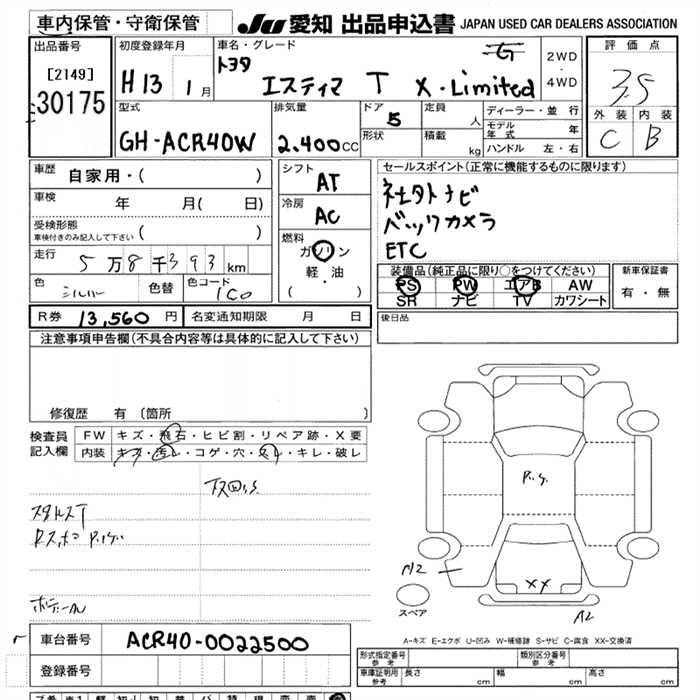 車内保管・守衛保管
JU 愛知 出品申込書 JAPAN USED CAR DEALERS ASSOCIATION
出品番号
[2149]
30175
初度登録年月
H13 1月
車名・グレード
トヨタ
エスティマ T X-Limited
2WD
4WD
評価点
3.5
外装 内装
C B
型式
GH-ACR40W
排気量
2.400cc
ドア
5
形状
定員 人
積載 kg
ディーラー・並行
モデル年式 年
ハンドル 左・右
車歴 自家用・( )
車検 年 月( 日)
受検形態
車検付きのみ記入して下さい ( )
走行 5万8千393km
色 シルバー 色替 色コード 1C0
シフト AT
冷房 AC
燃料
ガソリン
軽・油
( )
セールスポイント(正常に機能するものに限ります)
社外ナビ
バックカメラ
ETC
装備品(純正品に限り○をつけてください)
PS PW エアB AW
SR ナビ TV カワシート
新車保証書
有・無
R券 13,560円 名変通知期限 月 日
後日品
注意事項申告欄(不具合内容等は具体的に記入して下さい)
修復歴 有(箇所 )
検査員記入欄
FW キズ・飛石・ヒビ割・リペア跡・X要
内装 キズ・汚レ・コゲ・穴・スレ・キレ・破レ
A2
XX
A2
スペア
A-キズ E-エクボ U-凹み W-補修跡 S-サビ C-腐食 XX-交換済
車台番号 ACR40-0022500
登録番号
形式指定番号 参考
類別区分番号 参考
車庫証明用 参考 長さ cm 幅 cm 高さ cm